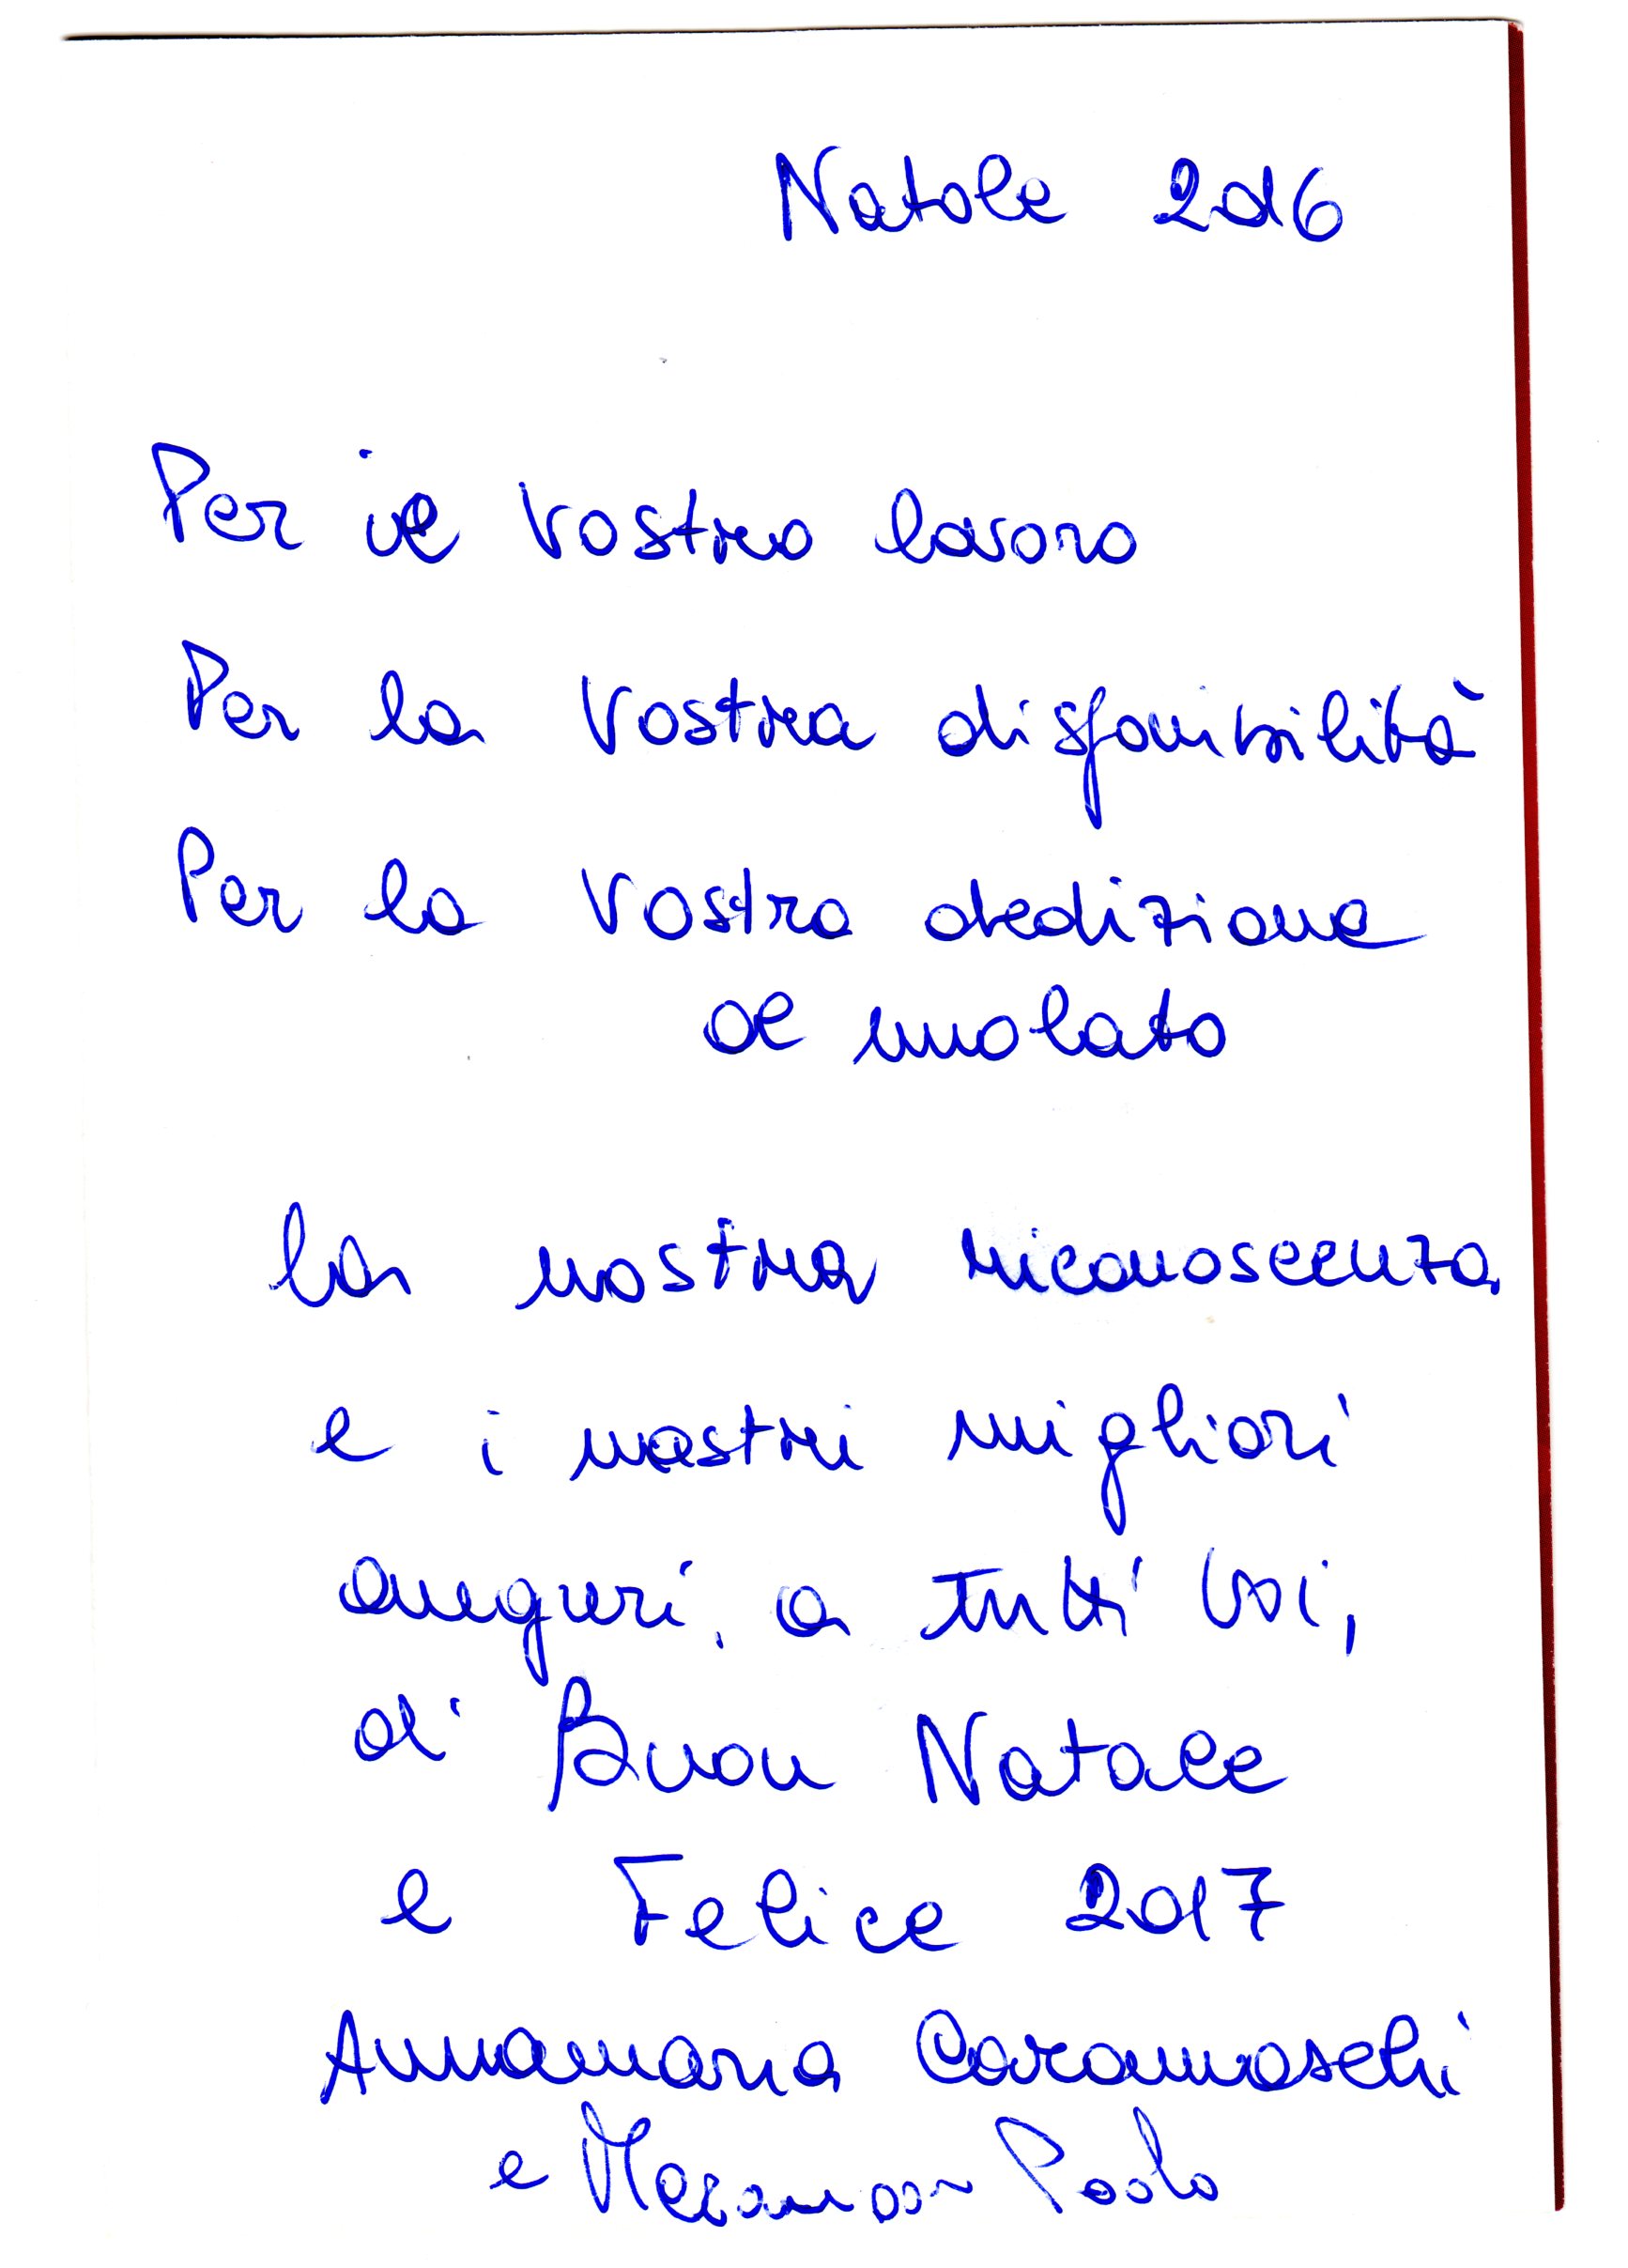 Natale 2016
Per il Vostro lavoro
Per la Vostra disponibilità
Per la Vostra dedizione
al malato
la nostra riconoscenza
e i nostri migliori
auguri, a tutti Voi,
di Buon Natale
e Felice 2017
Annamaria Caramaschi
e Paolo